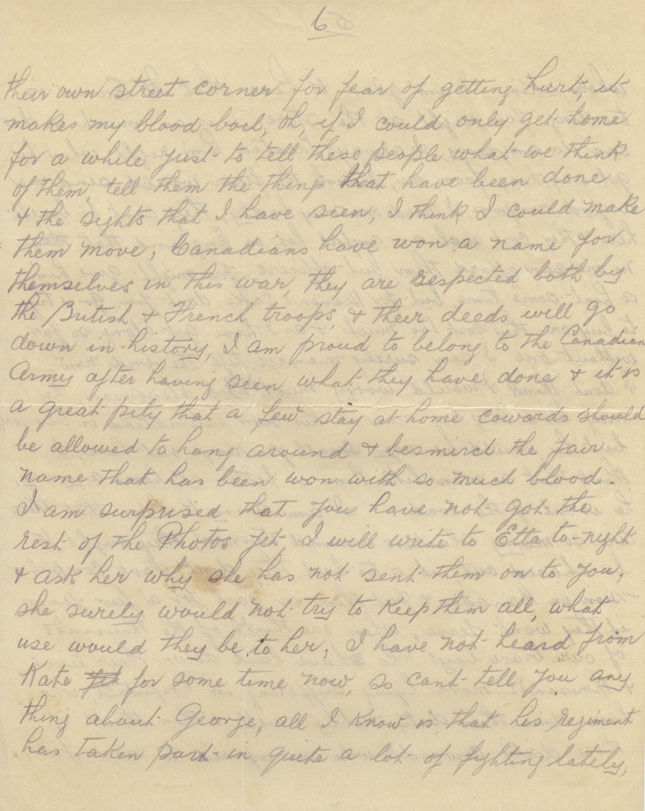 6
their own street corner for fear of getting hurt, it
makes my blood boil, oh, if I could only get home
for a while just to tell these people what we think
of them, tell them the things that have been done
& the sights that I have seen, I think I could make
them move, Canadians have won a name for
themselves in this war, they are respected both by
the British & French troops, & their deeds will go
down in history, I am proud to belong to the Canadian
Army after having seen what they have done & it is
a great pity that a few stay at home cowards should
be allowed to hang around & besmirch the fair
name that has been won with so much blood.
I am surprised that you have not got the
rest of the Photos yet, I will write to Etta to-night
& ask her why she has not sent them on to you,
she surely would not try to keep them all, what
use would they be to her, I have not heard from
Kate for some time now, so cant tell you any
thing about George, all I know is that his regiment
has taken part in quite a lot of fighting lately,